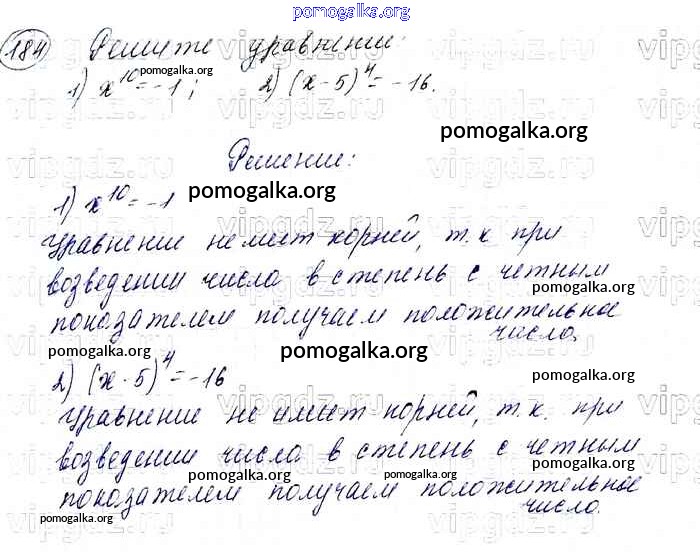 pomogalka.org
184) Решите уравнении:
pomogalka.org
1) x^10 = -1; 2) (x-5)^4 = -16.
pomogalka.org
Решение:
1) x^10 = -1
pomogalka.org
Уравнение не имеет корней, т.к при
возведении числа в степень с четным
pomogalka.org
показателем получаем положительное
число,
pomogalka.org
pomogalka.org
pomogalka.org
2) (x-5)^4 = -16
pomogalka.org
Уравнение не имеет корней, т.к. при
возведении числа в степень с четным
pomogalka.org
pomogalka.org
pomogalka.org
показателем получаем положительное
число.
pomogalka.org
pomogalka.org